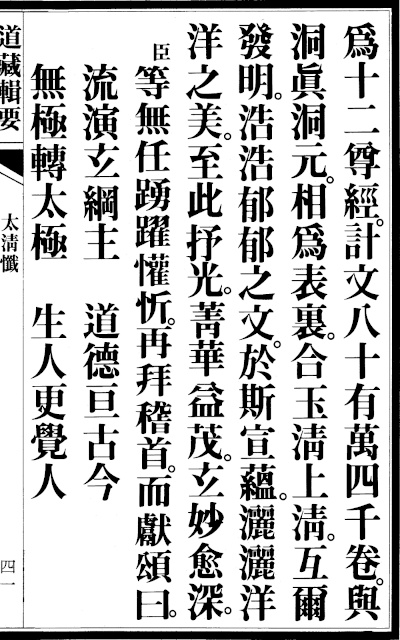 爲十二尊經。計文八十有萬四千卷。與
洞眞洞元。相爲表裏。合玉淸上淸。互爾
發明。浩浩郁郁之文。於斯宣蘊。灑灑洋
洋之美。至此抒光。菁華益茂。玄妙愈深。
臣等無任踴躍懽忻。再拜稽首。而獻頌曰。
流演玄綱主　道德亘古今
無極轉太極　生人更覺人
道藏輯要　太淸懺　四一